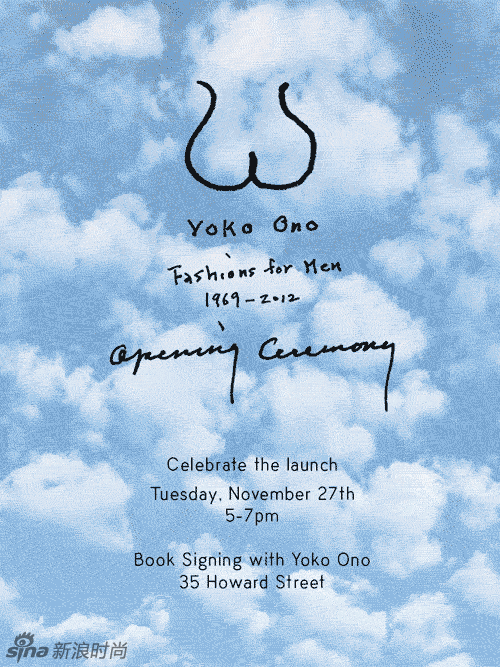 Yoko Ono
Fashions for Men
1969-2012
Opening Ceremony
Celebrate the launch
Tuesday, November 27th
5-7pm
Book Signing with Yoko Ono
35 Howard Street
sina 新浪时尚